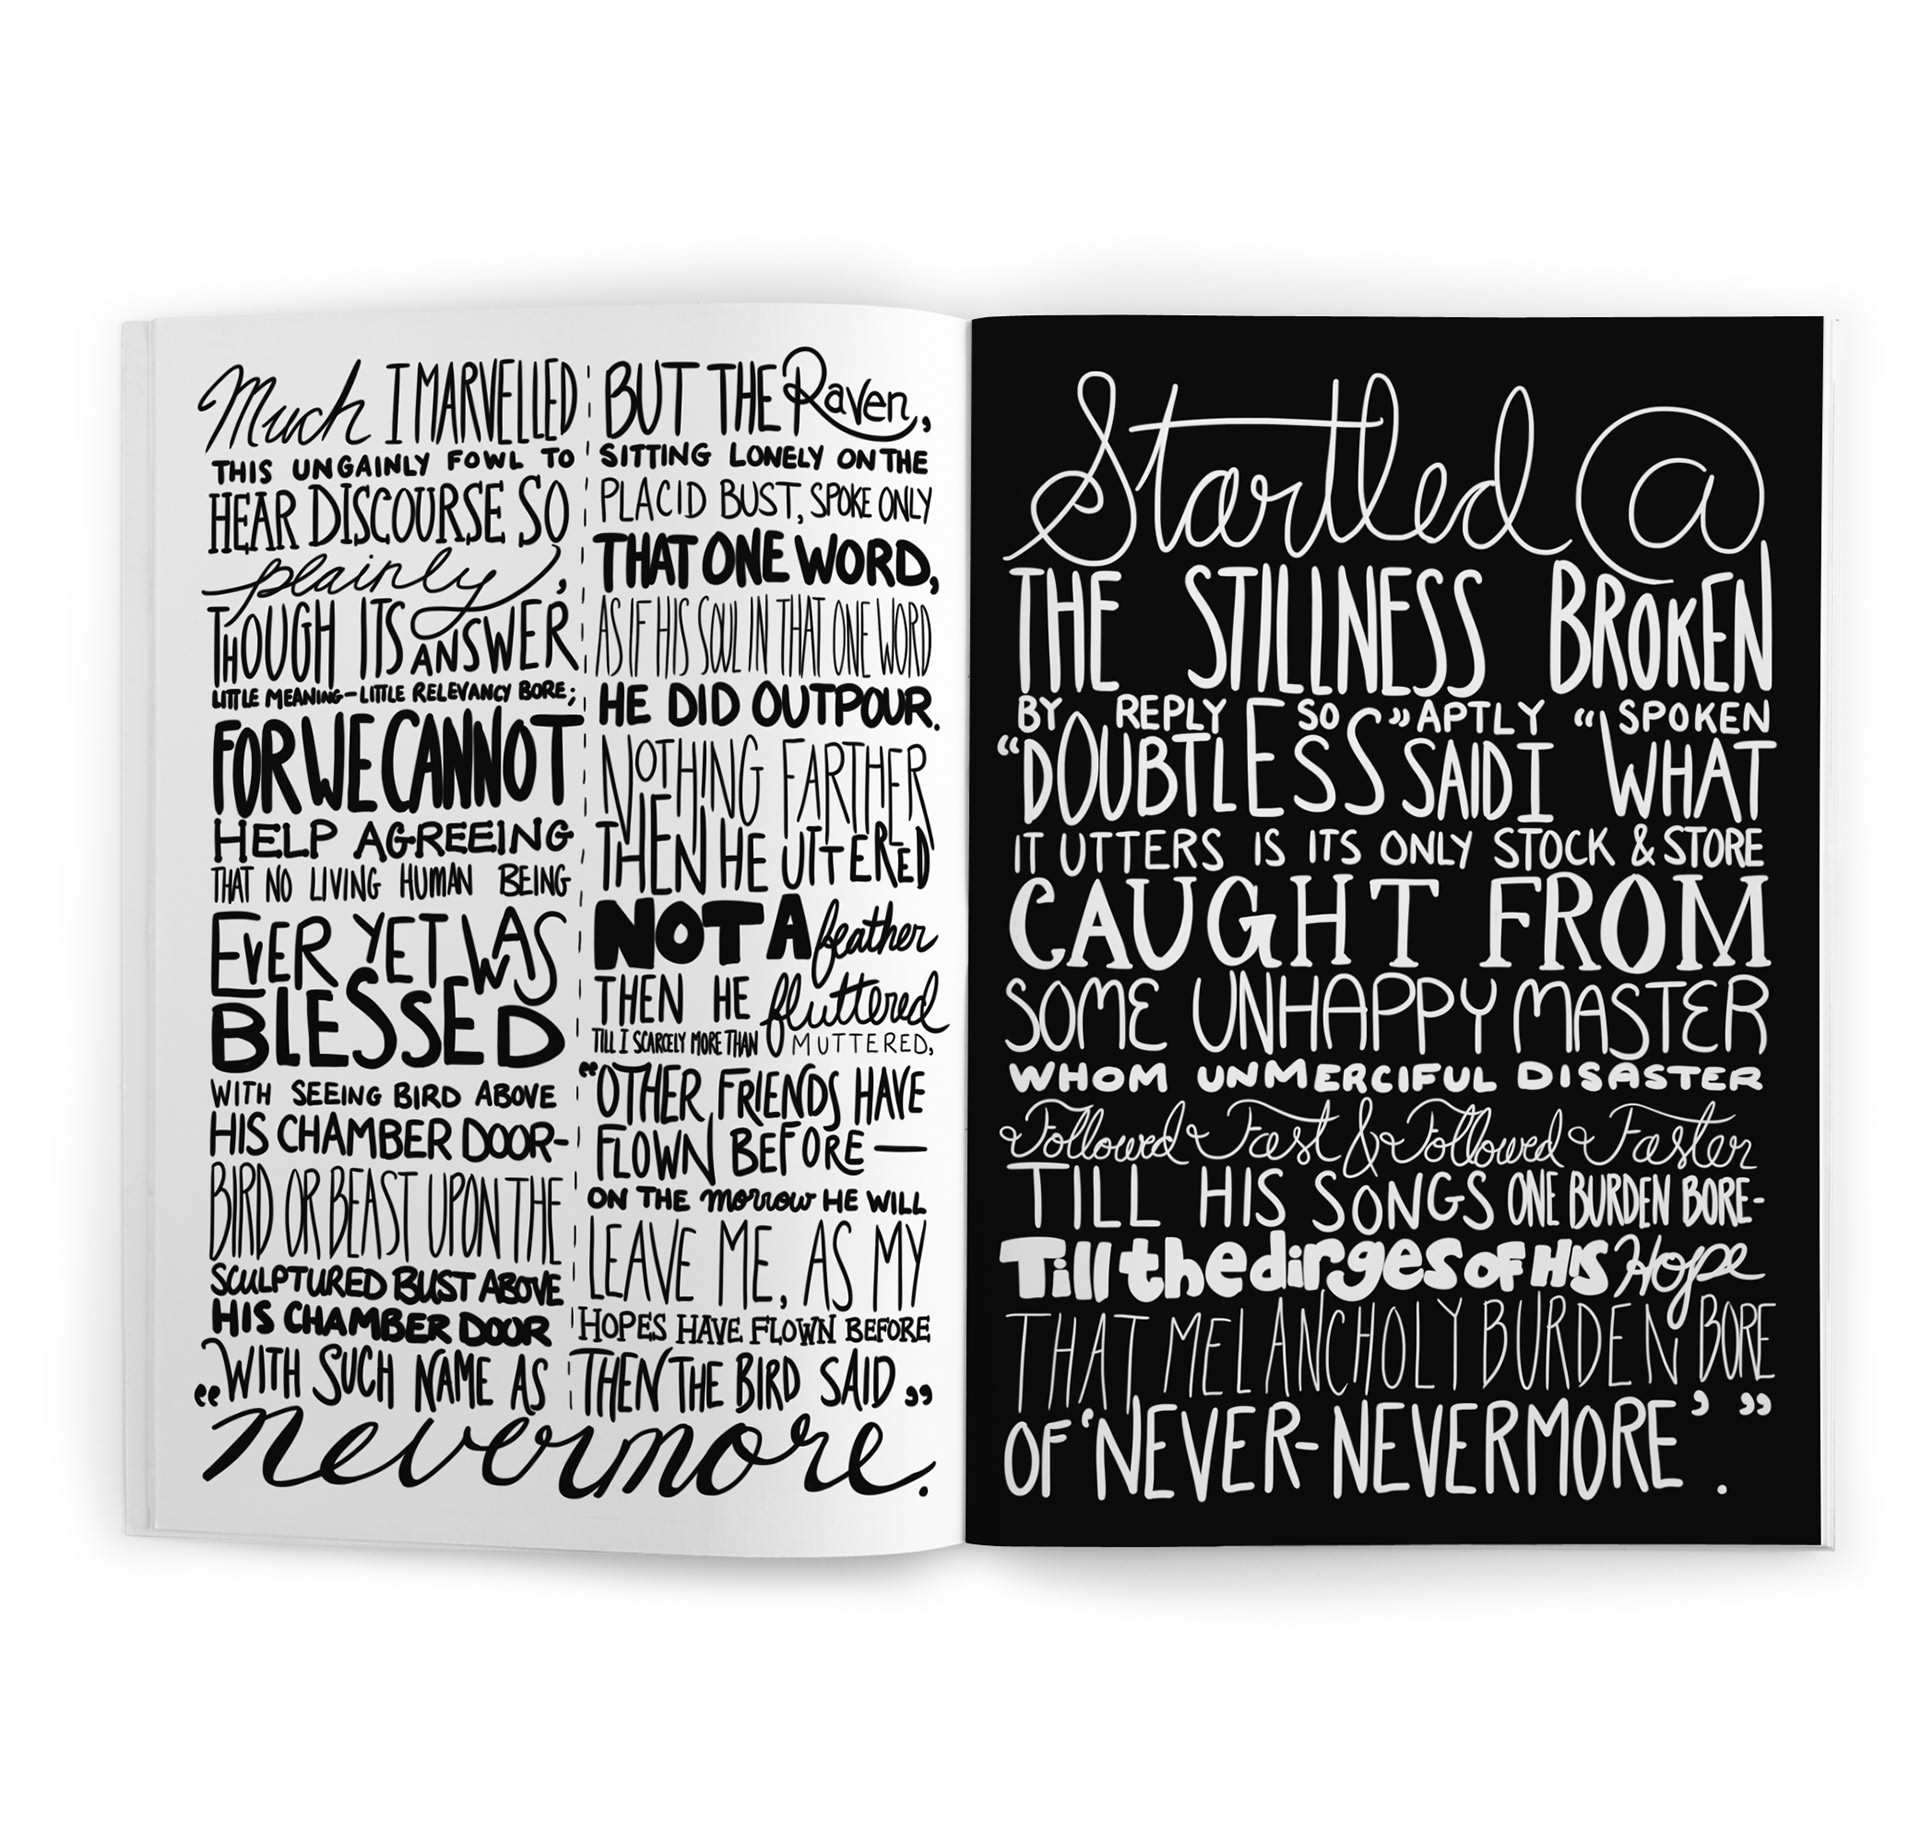 Much I MARVELLED
THIS UNGAINLY FOWL TO
HEAR DISCOURSE SO
plainly,
THOUGH ITS ANSWER
LITTLE MEANING-LITTLE RELEVANCY BORE;
FOR WE CANNOT
HELP AGREEING
THAT NO LIVING HUMAN BEING
EVER YET WAS
BLESSED
WITH SEEING BIRD ABOVE
HIS CHAMBER DOOR-
BIRD OR BEAST UPON THE
SCULPTURED BUST ABOVE
HIS CHAMBER DOOR
“WITH SUCH NAME AS
BUT THE Raven,
SITTING LONELY ON THE
PLACID BUST, SPOKE ONLY
THAT ONE WORD,
AS IF HIS SOUL IN THAT ONE WORD
HE DID OUTPOUR.
NOTHING FARTHER
THEN HE UTTERED
NOT A feather
THEN HE fluttered
TILL I SCARCELY MORE THAN MUTTERED,
“OTHER FRIENDS HAVE
FLOWN BEFORE —
ON THE morrow HE WILL
LEAVE ME, AS MY
HOPES HAVE FLOWN BEFORE
THEN THE BIRD SAID ”
nevermore.
Startled @
THE STILLNESS BROKEN
BY REPLY SO ” APTLY “ SPOKEN
“DOUBTLESS SAID I “WHAT
IT UTTERS IS ITS ONLY STOCK & STORE
CAUGHT FROM
SOME UNHAPPY MASTER
WHOM UNMERCIFUL DISASTER
Followed Fast & Followed Faster
TILL HIS SONGS ONE BURDEN BORE-
Till the dirges of HIS Hope
THAT MELANCHOLY BURDEN BORE
OF ‘NEVER-NEVERMORE’ ”.